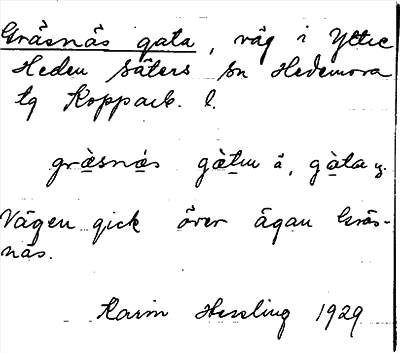 Gräsnäs gata, väg i Yttre
Heden Säters sn Hedemora
tg Kopparb. l.
gràsnás gàtu å, gàta y.
Vägen gick över ägan Gräs-
näs.
Karin Hessling 1929